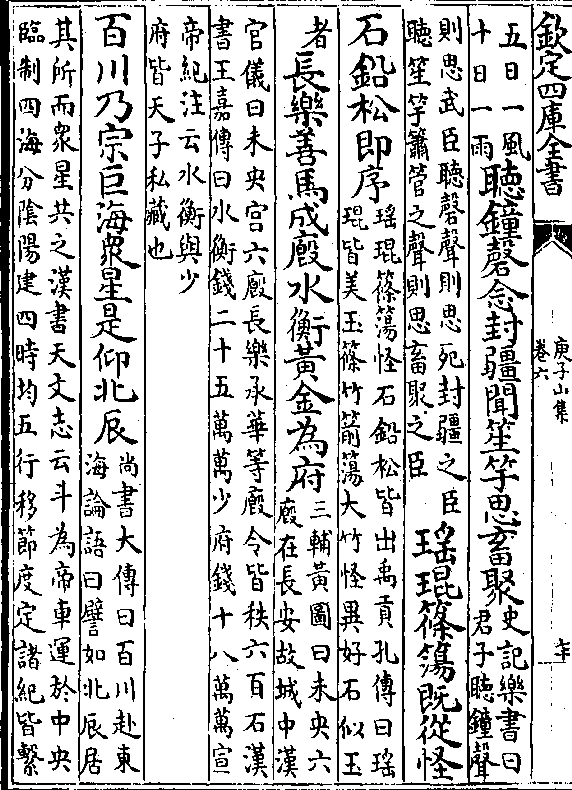 欽定四庫全書
庾子山集
卷六
五日一風
十日一雨
聽鐘磬念封疆聞笙竽思畜聚
史記樂書曰
君子聽鐘聲
則思武臣聽磬聲則思死封疆之臣
聽笙竽簫管之聲則思畜聚之臣
瑤琨篠簜既從怪
石鉛松即序
瑤琨篠簜怪石鉛松皆出禹貢孔傳曰瑤
琨皆美玉篠竹箭簜大竹怪異好石似玉
者
長樂善馬成廄水衡黃金為府
三輔黃圖曰未央六
廄在長安故城中漢
官儀曰未央宮六廄長樂承華等廄令皆秩六百石漢
書王嘉傳曰水衡錢二十五萬萬少府錢十八萬萬宣
帝紀注云水衡與少
府皆天子私藏也
百川乃宗巨海衆星是仰北辰
尚書大傳曰百川赴東
海論語曰譬如北辰居
其所而衆星共之漢書天文志云斗為帝車運於中央
臨制四海分陰陽建四時均五行移節度定諸紀皆繫